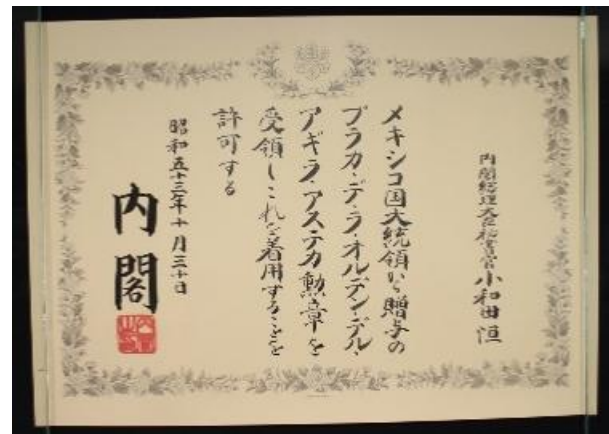 内閣総理大臣秘書官小和田恒
メキシコ国大統領から贈与の
プラカ・デ・ラ・オルデン・デル・
アギラ・アステカ勲章を
受領しこれを着用することを
許可する
昭和五十三年十月三十日
内閣